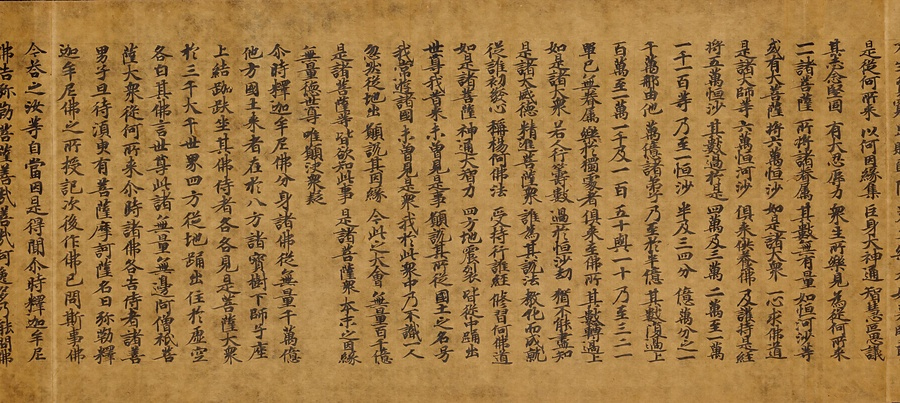 是從何所來 以何因緣集 巨身大神通 智慧叵思議
其志念堅固 有大忍辱力 衆生所樂見 為從何所來
一一諸菩薩 所將諸眷属 其數無有量 如恒河沙等
或有大菩薩 將六萬恒沙 如是諸大衆 一心求佛道
是諸大師等 六萬恒河沙 俱來供養佛 及護持是經
將五萬恒沙 其數過於是 四萬及三萬 二萬至一萬
一千一百等 乃至一恒沙 半及三四分 億萬分之一
千萬那由他 萬億諸弟子 乃至於半億 其數復過上
百萬至一萬 一千及一百 五十與一十 乃至三二一
單己無眷属 樂於獨處者 俱來至佛所 其數轉過上
如是諸大衆 若人行籌數 過於恒沙劫 猶不能盡知
是諸大威德 精進菩薩衆 誰為其說法 教化而成就
從誰初發心 稱揚何佛法 受持行誰經 修習何佛道
如是諸菩薩 神通大智力 四方地震裂 皆從中踊出
世尊我昔來 未曾見是事 願說其所從 國土之名号
我常遊諸國 未曾見是衆 我於此衆中 乃不識一人
忽然從地出 願說其因緣 今此之大會 無量百千億
是諸菩薩等 皆欲知此事 是諸菩薩衆 本末之因緣
無量德世尊 唯願決衆疑
尒時釋迦牟尼佛分身諸佛從無量千萬億
他方國土來者在於八方諸寶樹下師子座
上結跏趺坐其佛侍者各各見是菩薩大衆
於三千大千世界四方從地踊出住於虛空
各白其佛言世尊此諸無量無邊阿僧祇菩
薩大衆從何所來尒時諸佛各告侍者諸善
男子且待須臾有菩薩摩訶薩名曰弥勒釋
迦牟尼佛之所授記次後作佛已問斯事佛
今答之汝等自當因是得聞尒時釋迦牟尼
佛告弥勒菩薩善哉善哉阿逸多乃能問佛